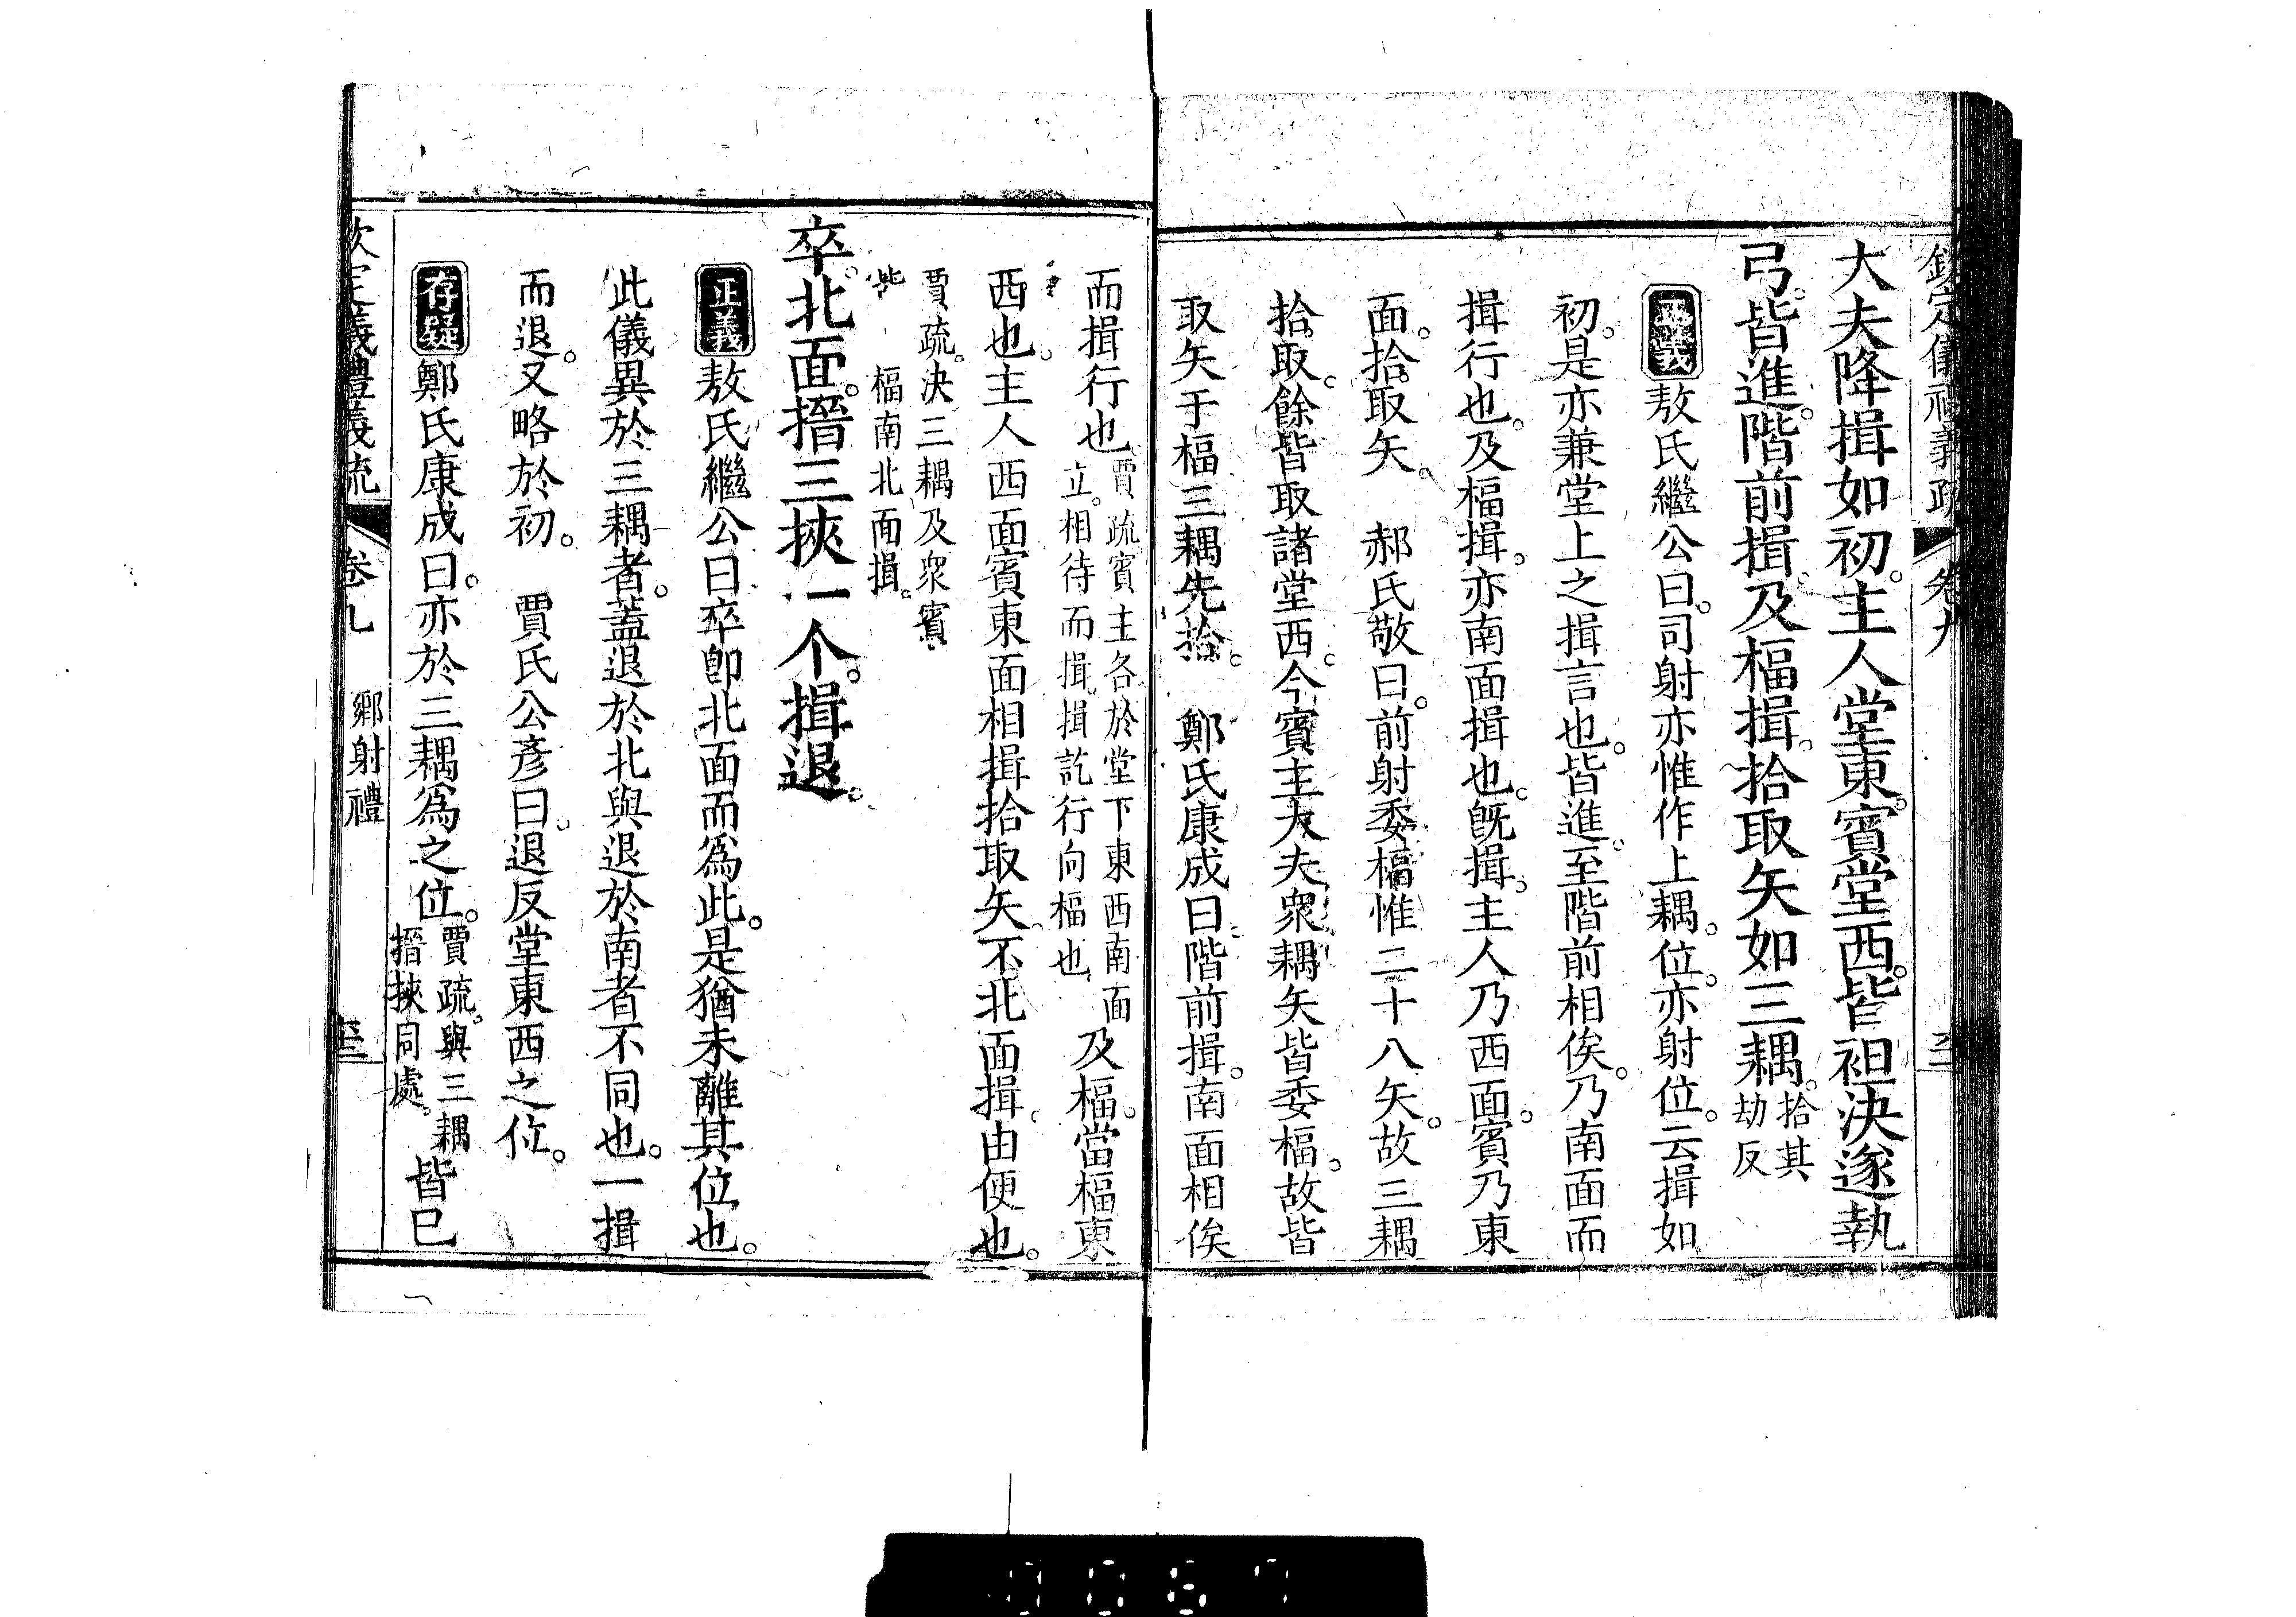 大夫降揖如初。主人堂東。賓堂西。皆袒決遂執
弓。皆進。階前揖。及楅揖。拾取矢如三耦。拾其
劫反
正義敖氏繼公曰。司射亦惟作上耦。位。亦射位。云揖如
初。是亦兼堂上之揖言也。皆進。至階前相俟。乃南面而
揖行也。及楅揖。亦南面揖也。旣揖。主人乃西面。賓乃東
面。拾取矢。 郝氏敬曰。前射委楅惟二十八矢。故三耦
拾取。餘皆取諸堂西。今賓主大夫衆耦矢皆委楅。故皆
取矢于楅三耦先拾。 鄭氏康成曰。階前揖。南面相俟
而揖行也。賈疏賓主各於堂下東西南面
立。相待而揖。揖訖行向楅也。
及楅。當楅東
西也。主人西面賓東面相揖拾取矢。不北面揖。由便也。
賈疏。決三耦及衆賓
皆 楅南北面揖。
卒。北面。搢三挾一个。揖退。
正義敖氏繼公曰卒卽北面而爲此。是猶未離其位也。
此儀異於三耦者。蓋退於北與退於南者不同也。一揖
而退。又略於初。 賈氏公彥曰。退反堂東西之位。
存疑鄭氏康成曰。亦於三耦爲之位。賈疏。與三耦
搢挾同處。
皆已
欽定儀禮義疏 卷九
卷九 鄉射禮